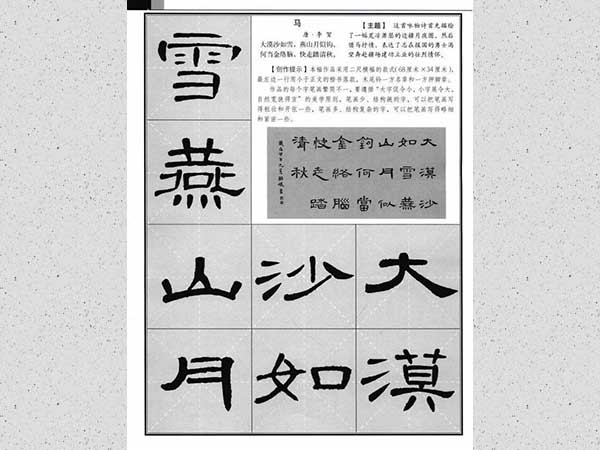 马
唐·李贺
大漠沙如雪，燕山月似钩。
何当金络脑，快走踏清秋。
【主题】 这首咏物诗首先描绘
了一幅悲凉萧瑟的边疆月夜图，然后
借马抒情，表达了志在报国的勇士渴
望奔赴疆场建功立业的壮烈情怀。
【创作提示】本幅作品采用二尺横幅的款式(68厘米×34厘米)，
最左边一行用小于正文的楷书落款，末尾钤一方名章和一方押脚章。
作品的每个字笔画繁简不一，要遵循“大字促令小，小字展令大，
自然宽狭得宜”的美学原则，笔画少、结构疏的字，可以把笔画写
得粗壮和开张一些，笔画多、结构复杂的字，可以把笔画写得略细
和紧密一些。
大漠沙
如雪燕
山月似
鉤何當
金絡腦
快走踏
清秋
大漠
沙如
雪燕山月